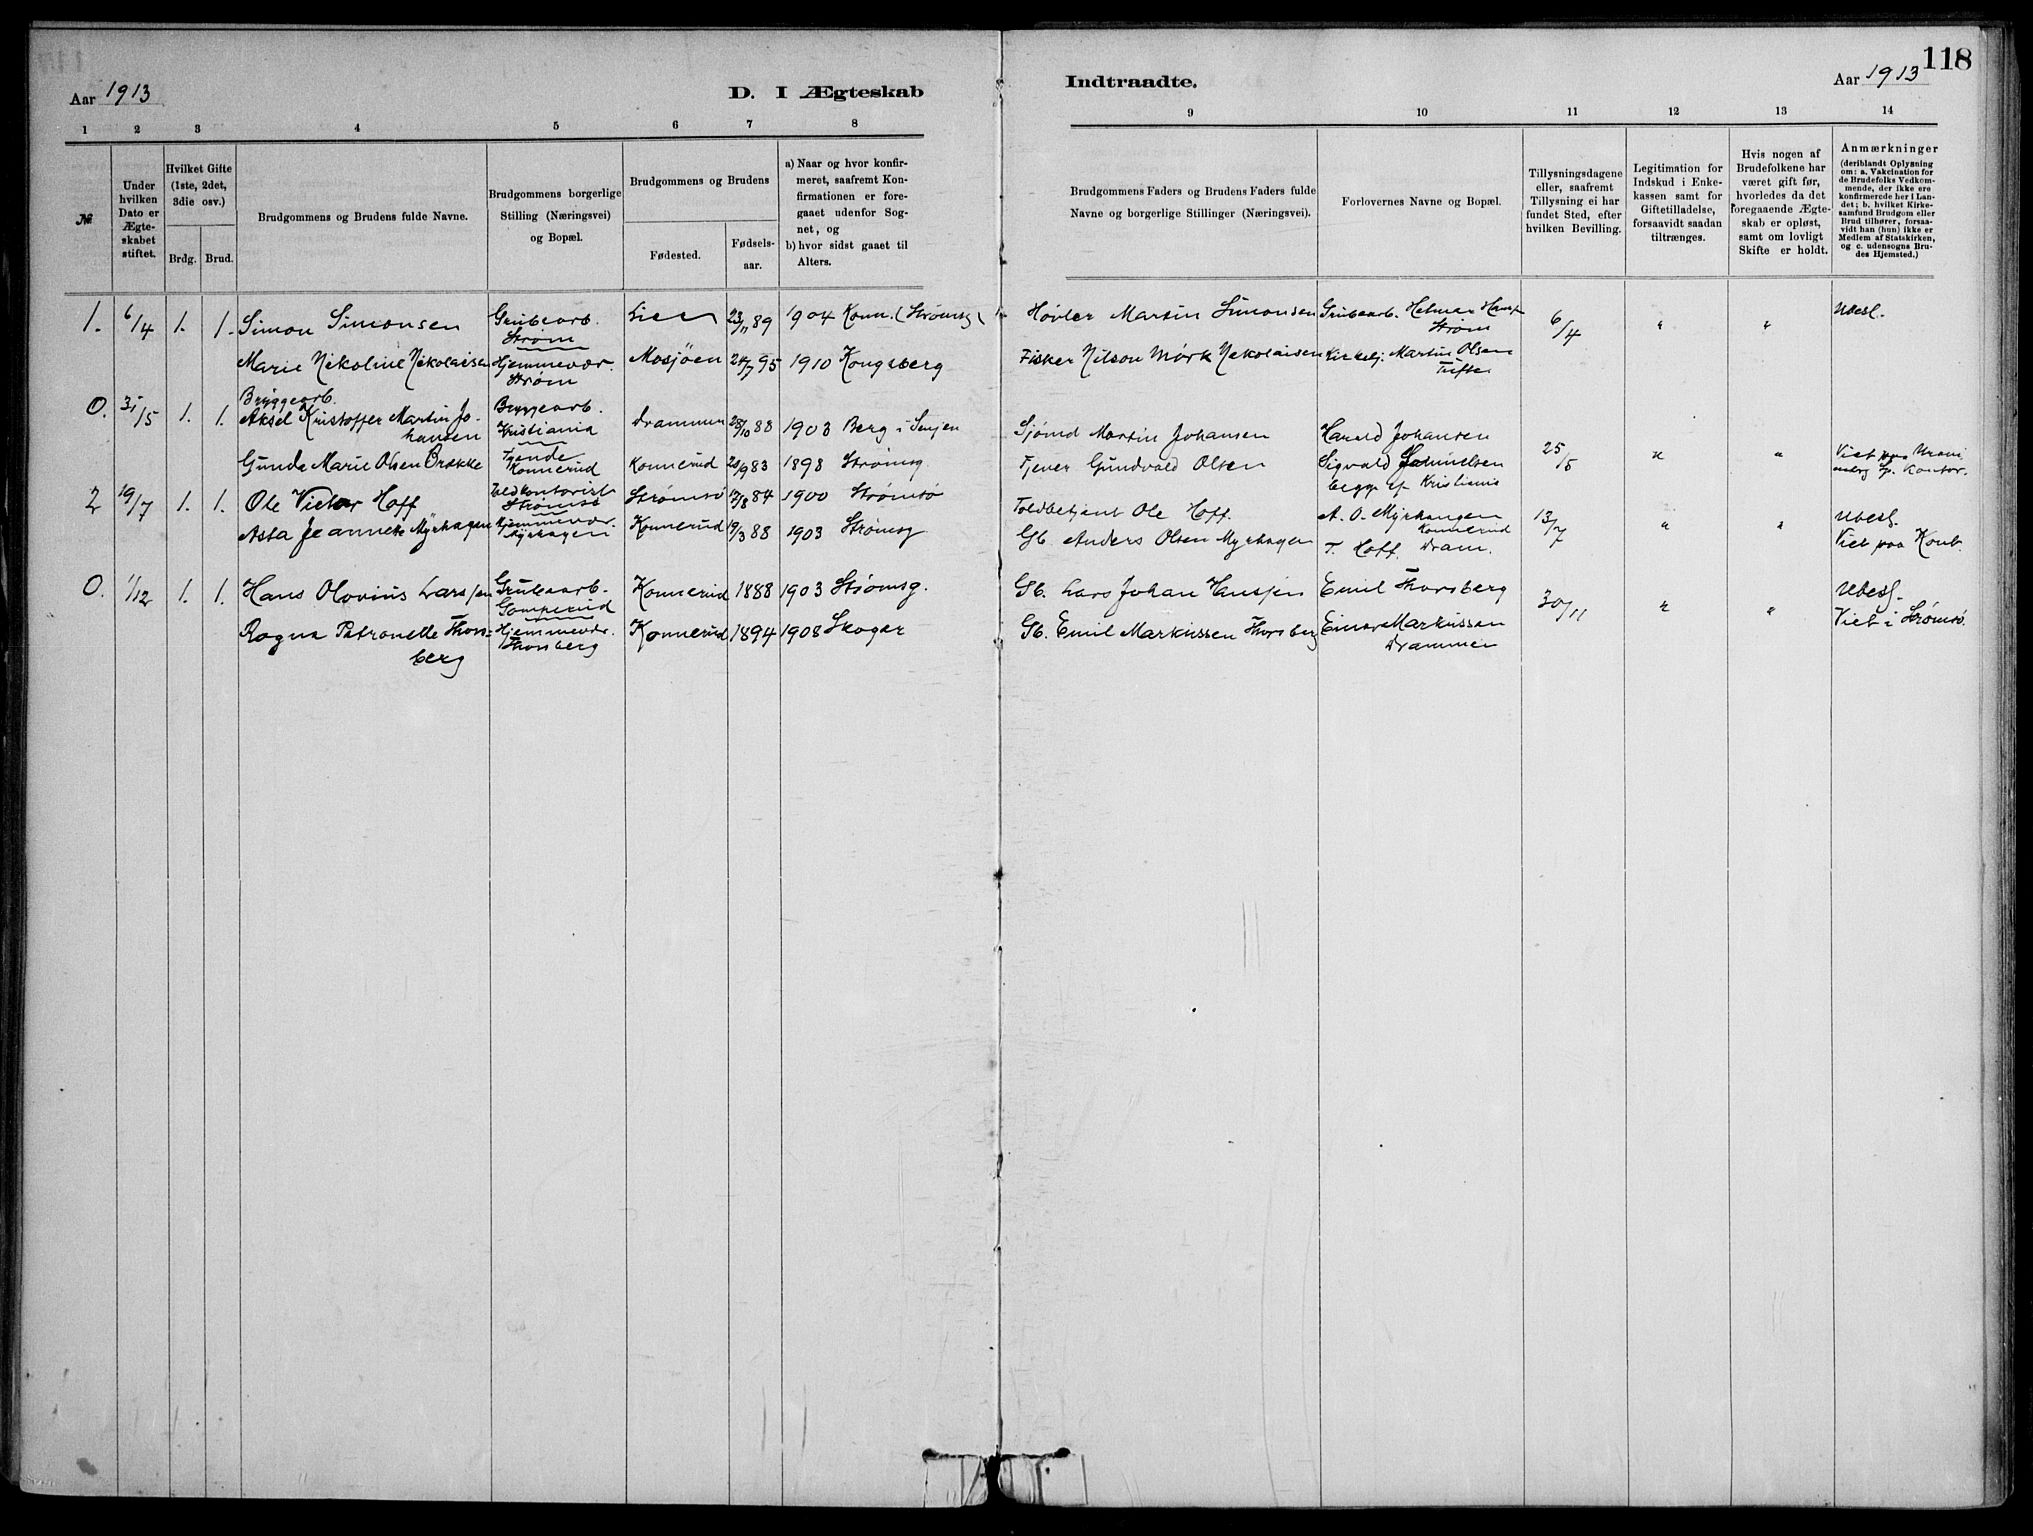 118
Aar 1913
D. I Ægteskab
Indtraadte.
Aar 1913
1 2 3 4 5 6 7 8 9 10 11 12 13 14
№
Under hvilken Dato er Ægteskabet stiftet.
Hvilket Gifte (1ste, 2det, 3die osv.)
Brdg. Brud.
Brudgommens og Brudens fulde Navne.
Brudgommens borgerlige Stilling (Næringsvei) og Bopæl.
Brudgommens og Brudens
Fødested. Fødselsaar.
a) Naar og hvor konfirmeret, saafremt Konfirmationen er foregaaet udenfor Sognet, og
b) hvor sidst gaaet til Alters.
Brudgommens Faders og Brudens Faders fulde Navne og borgerlige Stillinger (Næringsvei).
Forlovernes Navne og Bopæl.
Tillysningsdagene eller, saafremt Tillysning ei har fundet Sted, efter hvilken Bevilling.
Legitimation for Indskud i Enkekassen samt for Giftetilladelse, forsaavidt saadan tiltrænges.
Hvis nogen af Brudefolkene har været gift før, hvorledes da det foregaaende Ægteskab er opløst, samt om lovligt Skifte er holdt.
Anmærkninger (deriblandt Oplysning om: a. Vakcination for de Brudefolks Vedkommende, der ikke ere konfirmerede her i Landet; b. hvilket Kirkesamfund Brudgom eller Brud tilhører, forsaavidt han (hun) ikke er Medlem af Statskirken, og c. udensogns Brudes Hjemsted.)
1. 6/4 1. 1. Simon Simonsen Grubearb. Strøm Lier 23/11 89 1904 Konn. (Strømsg) Høvler Martin Simonsen Grubearb. Helmer Strøm 6/4 " " Ubesl.
Marie Nikoline Nikolaisen Hjemmevær. Strøm Mosjøen 1910 Kongsberg Fisker Nilson Mørk Nikolaisen Kirketj. Martin Olsen Tufte
0. 31/5 1. 1. Bryggearb. Aksel Kristoffer Martin Johansen Bryggearb. Kristiania Drammen 28/10 88 1903 Berg i Senjen Sjømd Martin Johansen Harald Johansen 25/5 " "
Gunda Marie Olsen Brække Tjende Konnerud Konnerud 20/9 83 1898 Strømsg. Tjener Gundvald Olsen Sigvald Samuelsen begge af Kristiania Viet paa Kontor.
2 19/7 1. 1. Ole Victor Hoff Toldkontorist Strømsø Strømsø 12/8 84 1900 Strømsø Toldbetjent Ole Hoff. A. O. Myrhagen Konnerud 13/7 " " Ubesl.
Asta Jeannete Myrhagen Hjemmevær. Myrhagen Konnerud 19/3 88 1903 Strømsg Gb. Anders Olsen Myrhagen T. Hoff. Dram. Viet paa Kont.
0. 1/12 1. 1. Hans Olovius Larssen Grubearb. Gomperud Konnerud 1888 1903 Strømsg. Gb. Lars Johan Hanssen Emil Thorsberg 30/11 " " Ubesl.
Ragna Petronelle Thorsberg Hjemmevær. Thorsberg Konnerud 1894 1908 Skoger Gb. Emil Markussen Thorsberg Einar Markussen Drammen Viet i Strømsø.